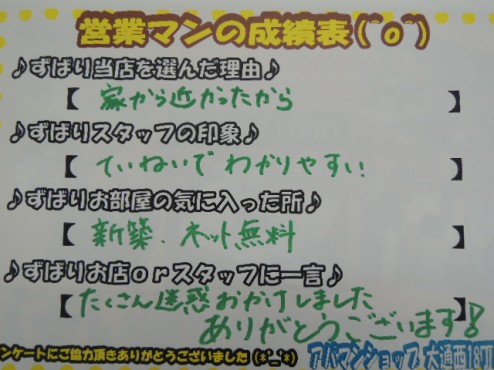 営業マンの成績表(^o^)
♪ずばり当店を選んだ理由♪
【 家から近かったから 】
♪ずばりスタッフの印象♪
【 ていねいで わかりやすい 】
♪ずばりお部屋の気に入った所♪
【 新築、ネット無料 】
♪ずばりお店orスタッフに一言♪
【たくさん迷惑おかけしました
ありがとうございます! 】
ンケートにご協力頂きありがとうございました(*^_^*) アパマンショップ 大通西18丁